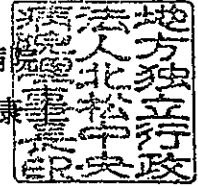 地方独立行政
法人北松中央
病院理事長之印
康